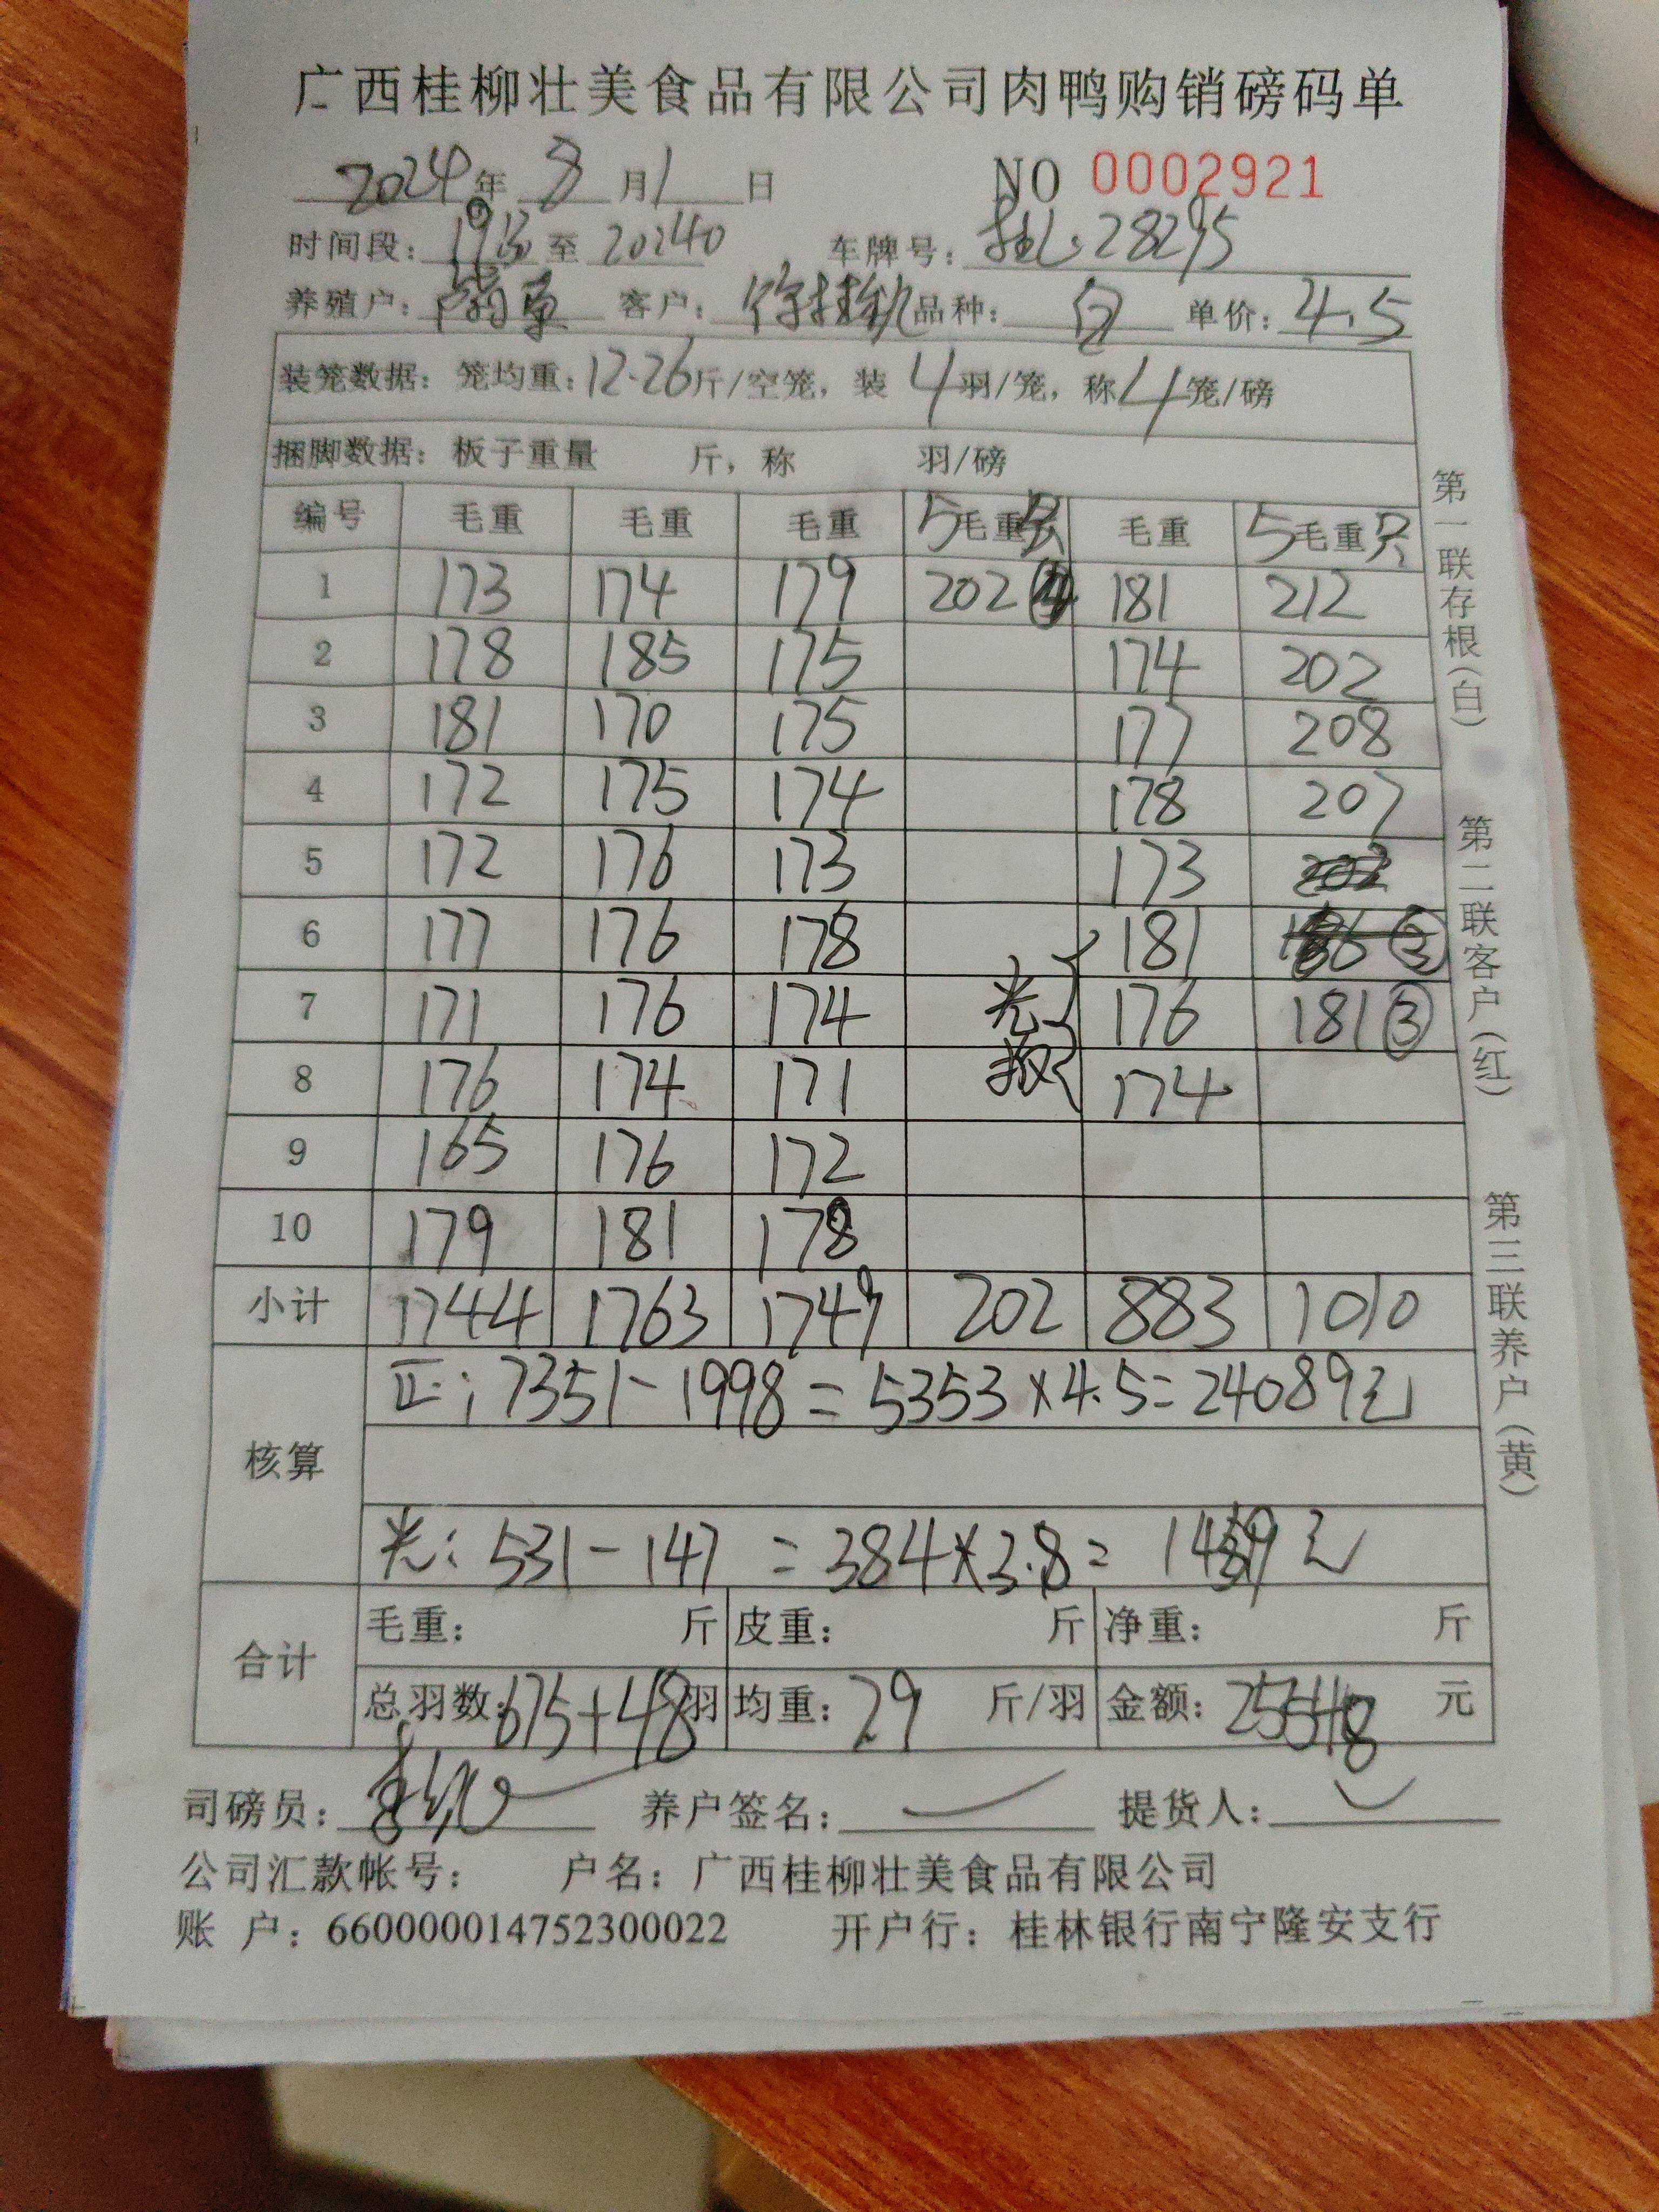 广西桂柳壮美食品有限公司肉鸭购销磅码单
2024年 8月1日 NO 0002921
时间段: 至 20240 车牌号: 28295
养殖户: 客户: 品种: 白 单价: 4.5
装笼数据: 笼均重: 12.26斤/空笼, 装 4羽/笼, 称4笼/磅
捆脚数据: 板子重量 斤, 称 羽/磅
编号 毛重 毛重 毛重 5毛重只 毛重 5毛重只
1 173 174 179 202 181 212
2 178 185 175 174 202
3 181 170 175 177 208
4 172 175 174 178 207
5 172 176 173 173
6 177 176 178 181
7 171 176 174 光 176 181③
8 176 174 171 174
9 165 176 172
10 179 181 178
小计 1744 1763 1749 202 883 1010
核算
正: 7351-1998=5353×4.5=24089元
光: 531-147=384×3.8= 元
合计 毛重: 斤 皮重: 斤 净重: 斤
总羽数: 675+48羽 均重: 29 斤/羽 金额: 元
司磅员: 养户签名: 提货人:
公司汇款帐号: 户名: 广西桂柳壮美食品有限公司
账 户: 660000014752300022 开户行: 桂林银行南宁隆安支行
第一联存根(白) 第二联客户(红) 第三联养户(黄)